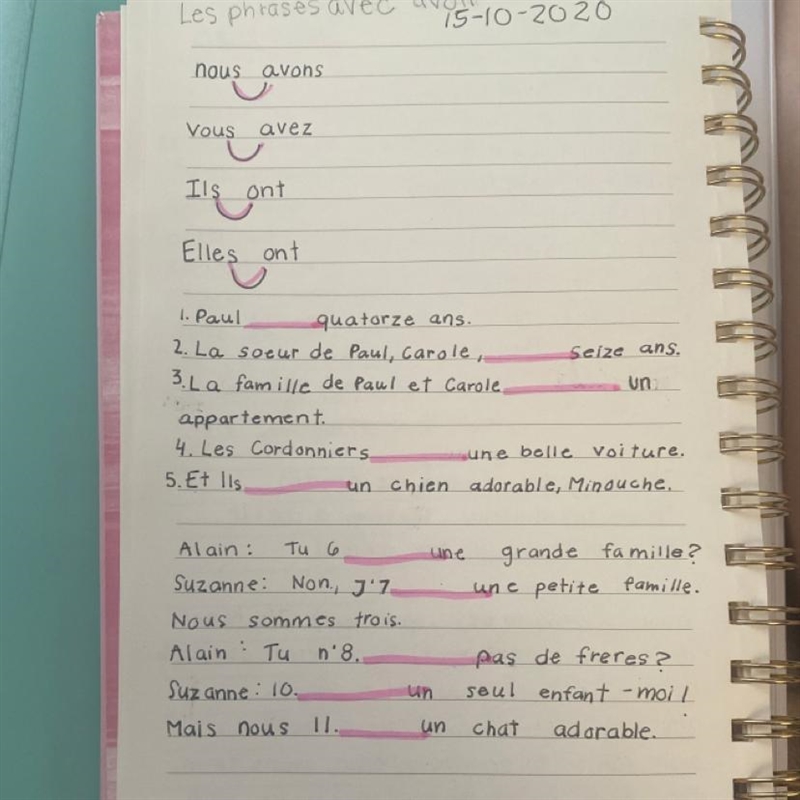 Les phrases avec avoir
15-10-2020
nous avons
vous avez
Ils ont
Elles ont
1. Paul ______ quatorze ans.
2. La soeur de Paul, Carole, ______ seize ans.
3. La famille de Paul et Carole ______ un
appartement.
4. Les Cordonniers ______ une belle voiture.
5. Et Ils ______ un chien adorable, Minouche.
Alain: Tu 6 ______ une grande famille?
Suzanne: Non, J'7 ______ une petite famille.
Nous sommes trois.
Alain: Tu n'8. ______ pas de freres?
Suzanne: 10. ______ un seul enfant -moi!
Mais nous 11. ______ un chat adorable.